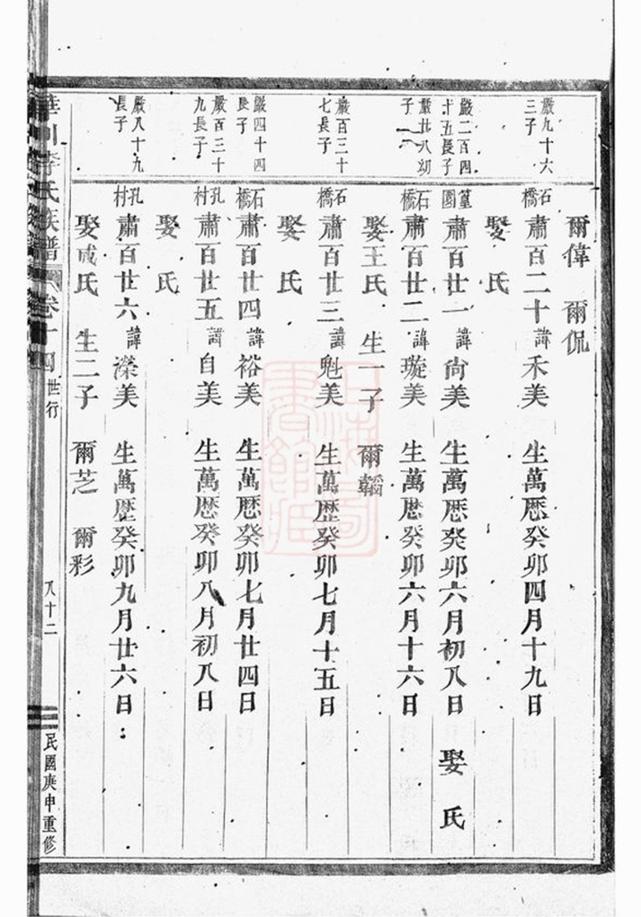 爾偉　爾侃
嚴九十六
三子
石橋
肅百二十　諱禾美　生萬厯癸卯四月十九日
娶　氏
嚴二百四
十五長子
篁園
肅百廿一　諱尙美　生萬厯癸卯六月初八日　娶　氏
嚴廿八幼
子
石橋
肅百廿二　諱璇美　生萬厯癸卯六月十六日
娶王氏　生一子　爾韜
嚴百三十
七長子
石橋
肅百廿三　諱魁美　生萬歷癸卯七月十五日
娶　氏
嚴四十四
長子
石橋
肅百廿四　諱裕美　生萬厯癸卯七月廿四日
嚴百三十
九長子
孔村
肅百廿五　諱自美　生萬厯癸卯八月初八日
娶　氏
嚴八十九
長子
孔村
肅百廿六　諱濚美　生萬歷癸卯九月廿六日
娶成氏　生二子　爾芝　爾彩
華川李氏族譜　卷十四　世行　八十二　民國庚申重修